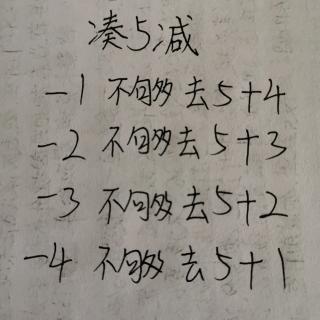 凑5减
-1 不够去5+4
-2 不够去5+3
-3 不够去5+2
-4 不够去5+1